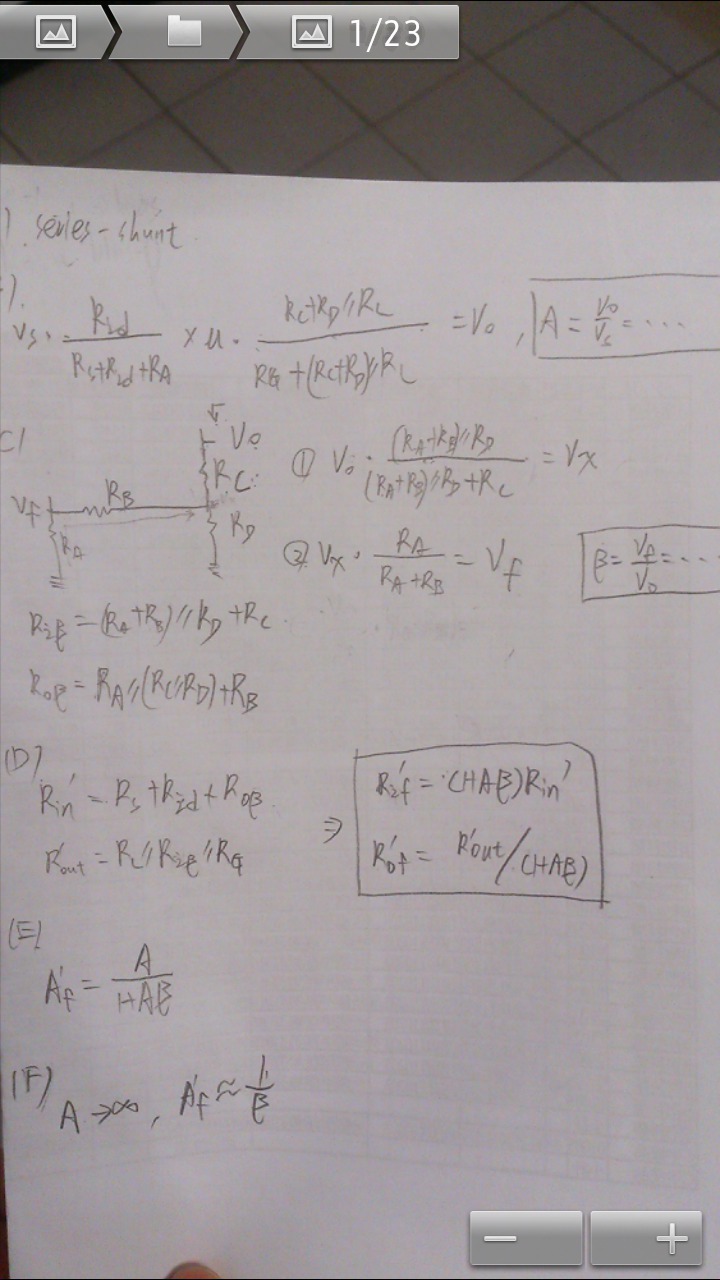 1/23
) series-shunt
).
Vs · Rid / (Rs+Rid+RA) × μ · (RC+RD//RL) / (RG+(RC+RD)//RL) = Vo , A = Vo/Vs = ....
C)
Vo
RC
Vf RB
RA RD
① Vo · ((RA+RB)//RD) / ((RA+RB)//RD+RC) = Vx
② Vx · RA / (RA+RB) = Vf
β = Vf/Vo = ...
Riβ = (RA+RB)//RD+RC
Roβ = RA//(RC//RD)+RB
(D)
Rin' = Rs+Rid+Roβ
R'out = RL//Riβ//RG
⇒
Rif' = (1+Aβ)Rin'
R'of = R'out/(1+Aβ)
(E)
A'f = A / (1+Aβ)
(F)
A→∞, A'f ≈ 1/β